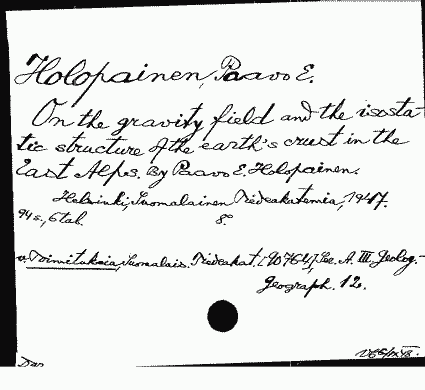 Holopainen, Paavo E.
On the gravity field and the isosta-
tic structure of the earth's crust in the
East Alps. By Paavo E. Holopainen.
Helsinki, Suomalainen Tiedeakatemia, 1947.
94 s., 6 tab. 8°.
v. Toimituksia, Suomalais. Tiedeakat. Ser. A. III. Geolog.-
Geograph. 12.